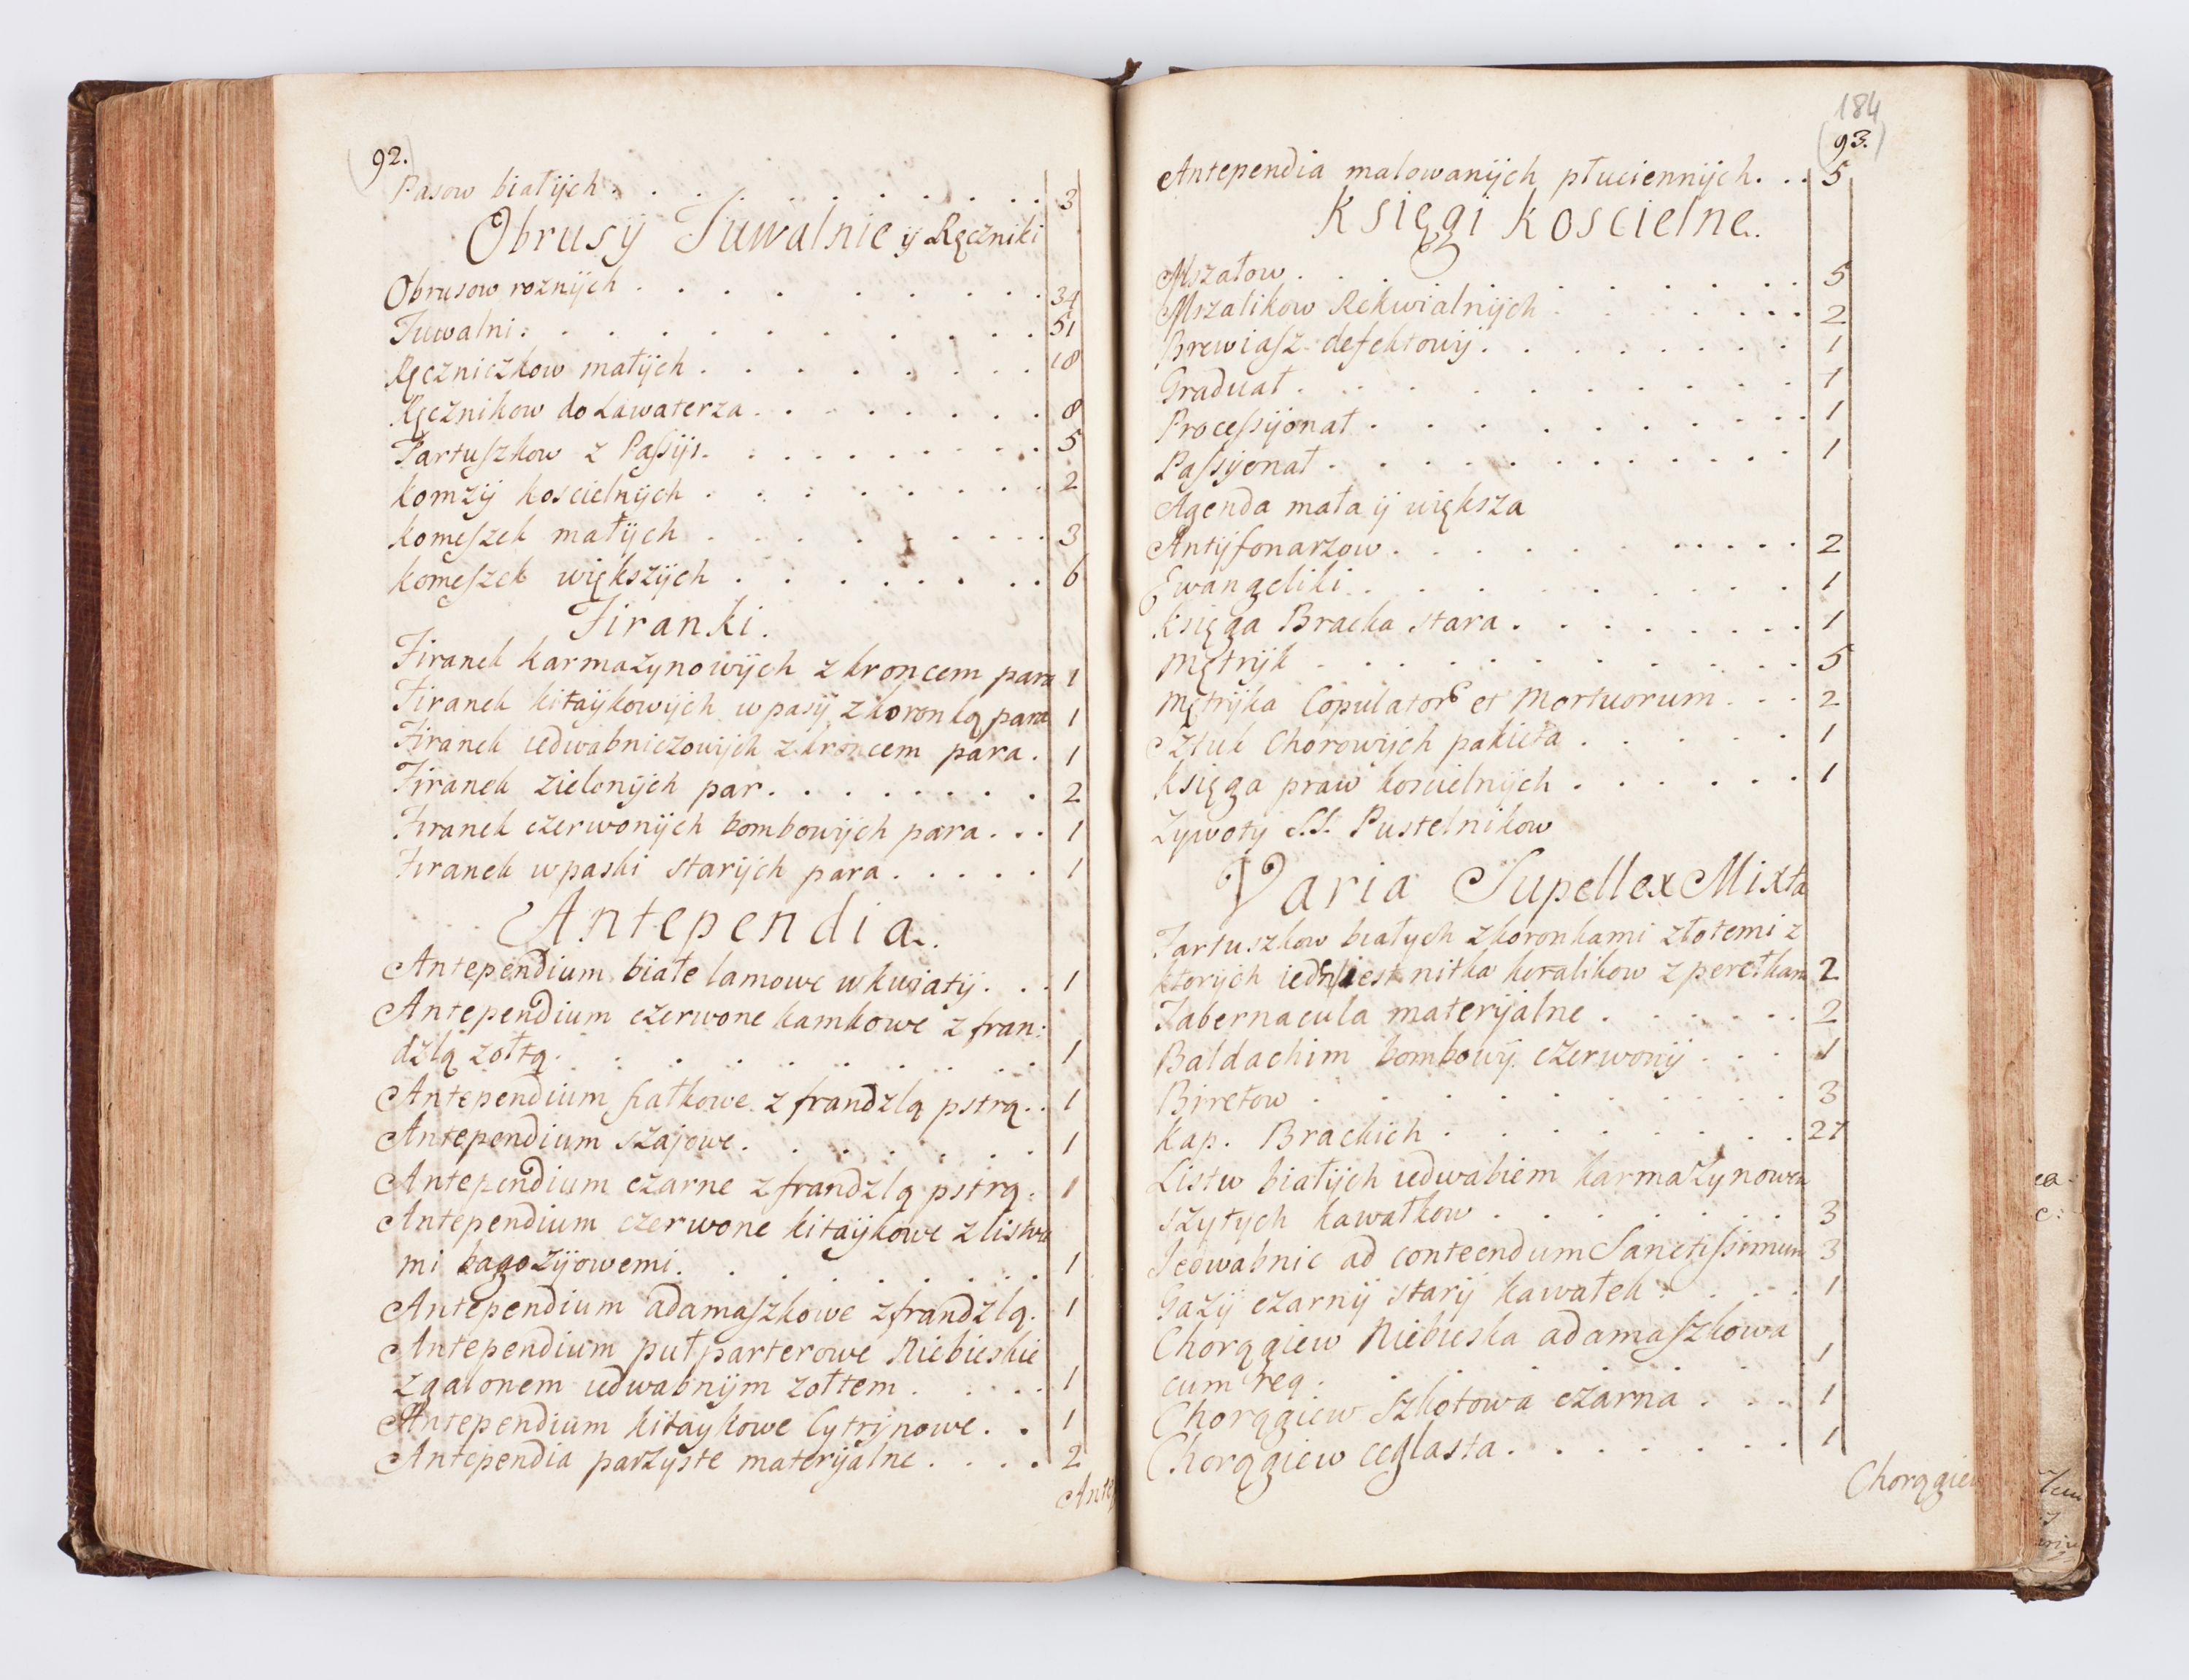 92.
Pasow białÿch . . . . . . . . . . 3
Obrusÿ Tuwalnie ÿ Ręczniki
Obrusow roznÿch . . . . . . . . . . 34
Tuwalni . . . . . . . . . . 51
Ręczniczkow małÿch . . . . . . . . 18
Ręcznikow do Lawaterza . . . . . . . 8
Fartuszkow z Passÿi . . . . . . . . . 5
Komzÿ koscielnÿch . . . . . . . . 2
Komeszek małÿch . . . . . . . . . 3
Komeszek większÿch . . . . . . . 6
Firanki.
Firanek karmazynowÿch z kroncem para 1
Firanek kitaÿkowÿch w pasÿ z koronką para 1
Firanek iedwabniczowÿch z kroncem para . 1
Firanek zielonÿch par . . . . . . . . 2
Firanek czerwonÿch bombowÿch para . . . 1
Firanek w paski starÿch para . . . . . 1
Antependia.
Antependium białe lamowe w kwiatÿ . . . 1
Antependium czerwone kamkowe z fran:
dzlą zołtą . . . . . . . . . . 1
Antependium fiałkowe z frandzlą pstrą . . 1
Antependium szajowe . . . . . . . 1
Antependium czarne z frandzlą pstrą . 1
Antependium czerwone kitaÿkowe z listwa
mi bagazÿowemi . . . . . . . . . 1
Antependium adamaszkowe z frandzlą . 1
Antependium puł parterowe Niebieskie
z galonem iedwabnÿm zołtem . . . . . 1
Antependium kitaykowe Cytrÿnowe . . 1
Antependia parzyste materÿalne . . . . 2
Antep
184
93.
Antependia malowanÿch płuciennÿch . . . 5
Księgi Koscielne.
Mszałow . . . . . . . . . . . 5
Mszalikow Rekwialnÿch . . . . . . . 2
Brewiasz defektowÿ . . . . . . . . 1
Graduał . . . . . . . . . . . 1
Processÿonał . . . . . . . . . . 1
Passÿonał . . . . . . . . . . . 1
Agenda mała ÿ większa
Antÿfonarzow . . . . . . . . . . . 2
Ewangeliki . . . . . . . . . . 1
Księga Bracka stara . . . . . . . . 1
Metrÿk . . . . . . . . . . . 5
Metrÿka Copulator et Mortuorum . . . 2
Sztuk Chorowÿch pakieta . . . . . . 1
Księga praw koscielnÿch . . . . . . 1
Zywoty SS. Pustelnikow
Varia Supellex Mixta
Fartuszkow białych z koronkami złotemi z
ktorÿch iedn iest nitka koralikow z perełkam 2
Tabernacula materÿalne . . . . . . 2
Baldachim bombowÿ czerwonÿ . . . 1
Biretow . . . . . . . . . . . 3
Kap. Brackich . . . . . . . . 21
Listw białÿch iedwabiem karmazynowem
szytych kawałkow . . . . . . . 3
Jedwabnic ad contecndum Sanctissimum 3
Gazÿ czarnÿ starÿ kawałek . . . . 1
Chorągiew Niebieska adamaszkowa
cum reg. . . . . . . . . . 1
Chorągiew Szkotowa czarna . . . . 1
Chorągiew ceglasta . . . . . . . 1
Chorągiew